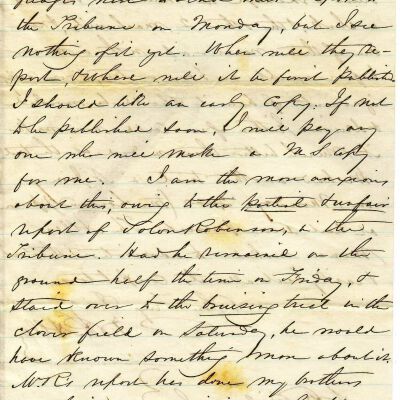 the Tribune on Monday, but I see
nothing of it yet. When will they re-
port, & where will it be first published
I should like an early copy. If not
to be published soon, I will pay any
one who will make a M.S. copy
for me. I am the more anxious
about this, owing to the partial & unfair
report of Solon Robinson, in the
Tribune. Had he remained on the
ground half the time on Friday, &
staid over to the bruising trial in the
clover field on Saturday, he would
have known something more about it.
Mr R's report has done my brothers